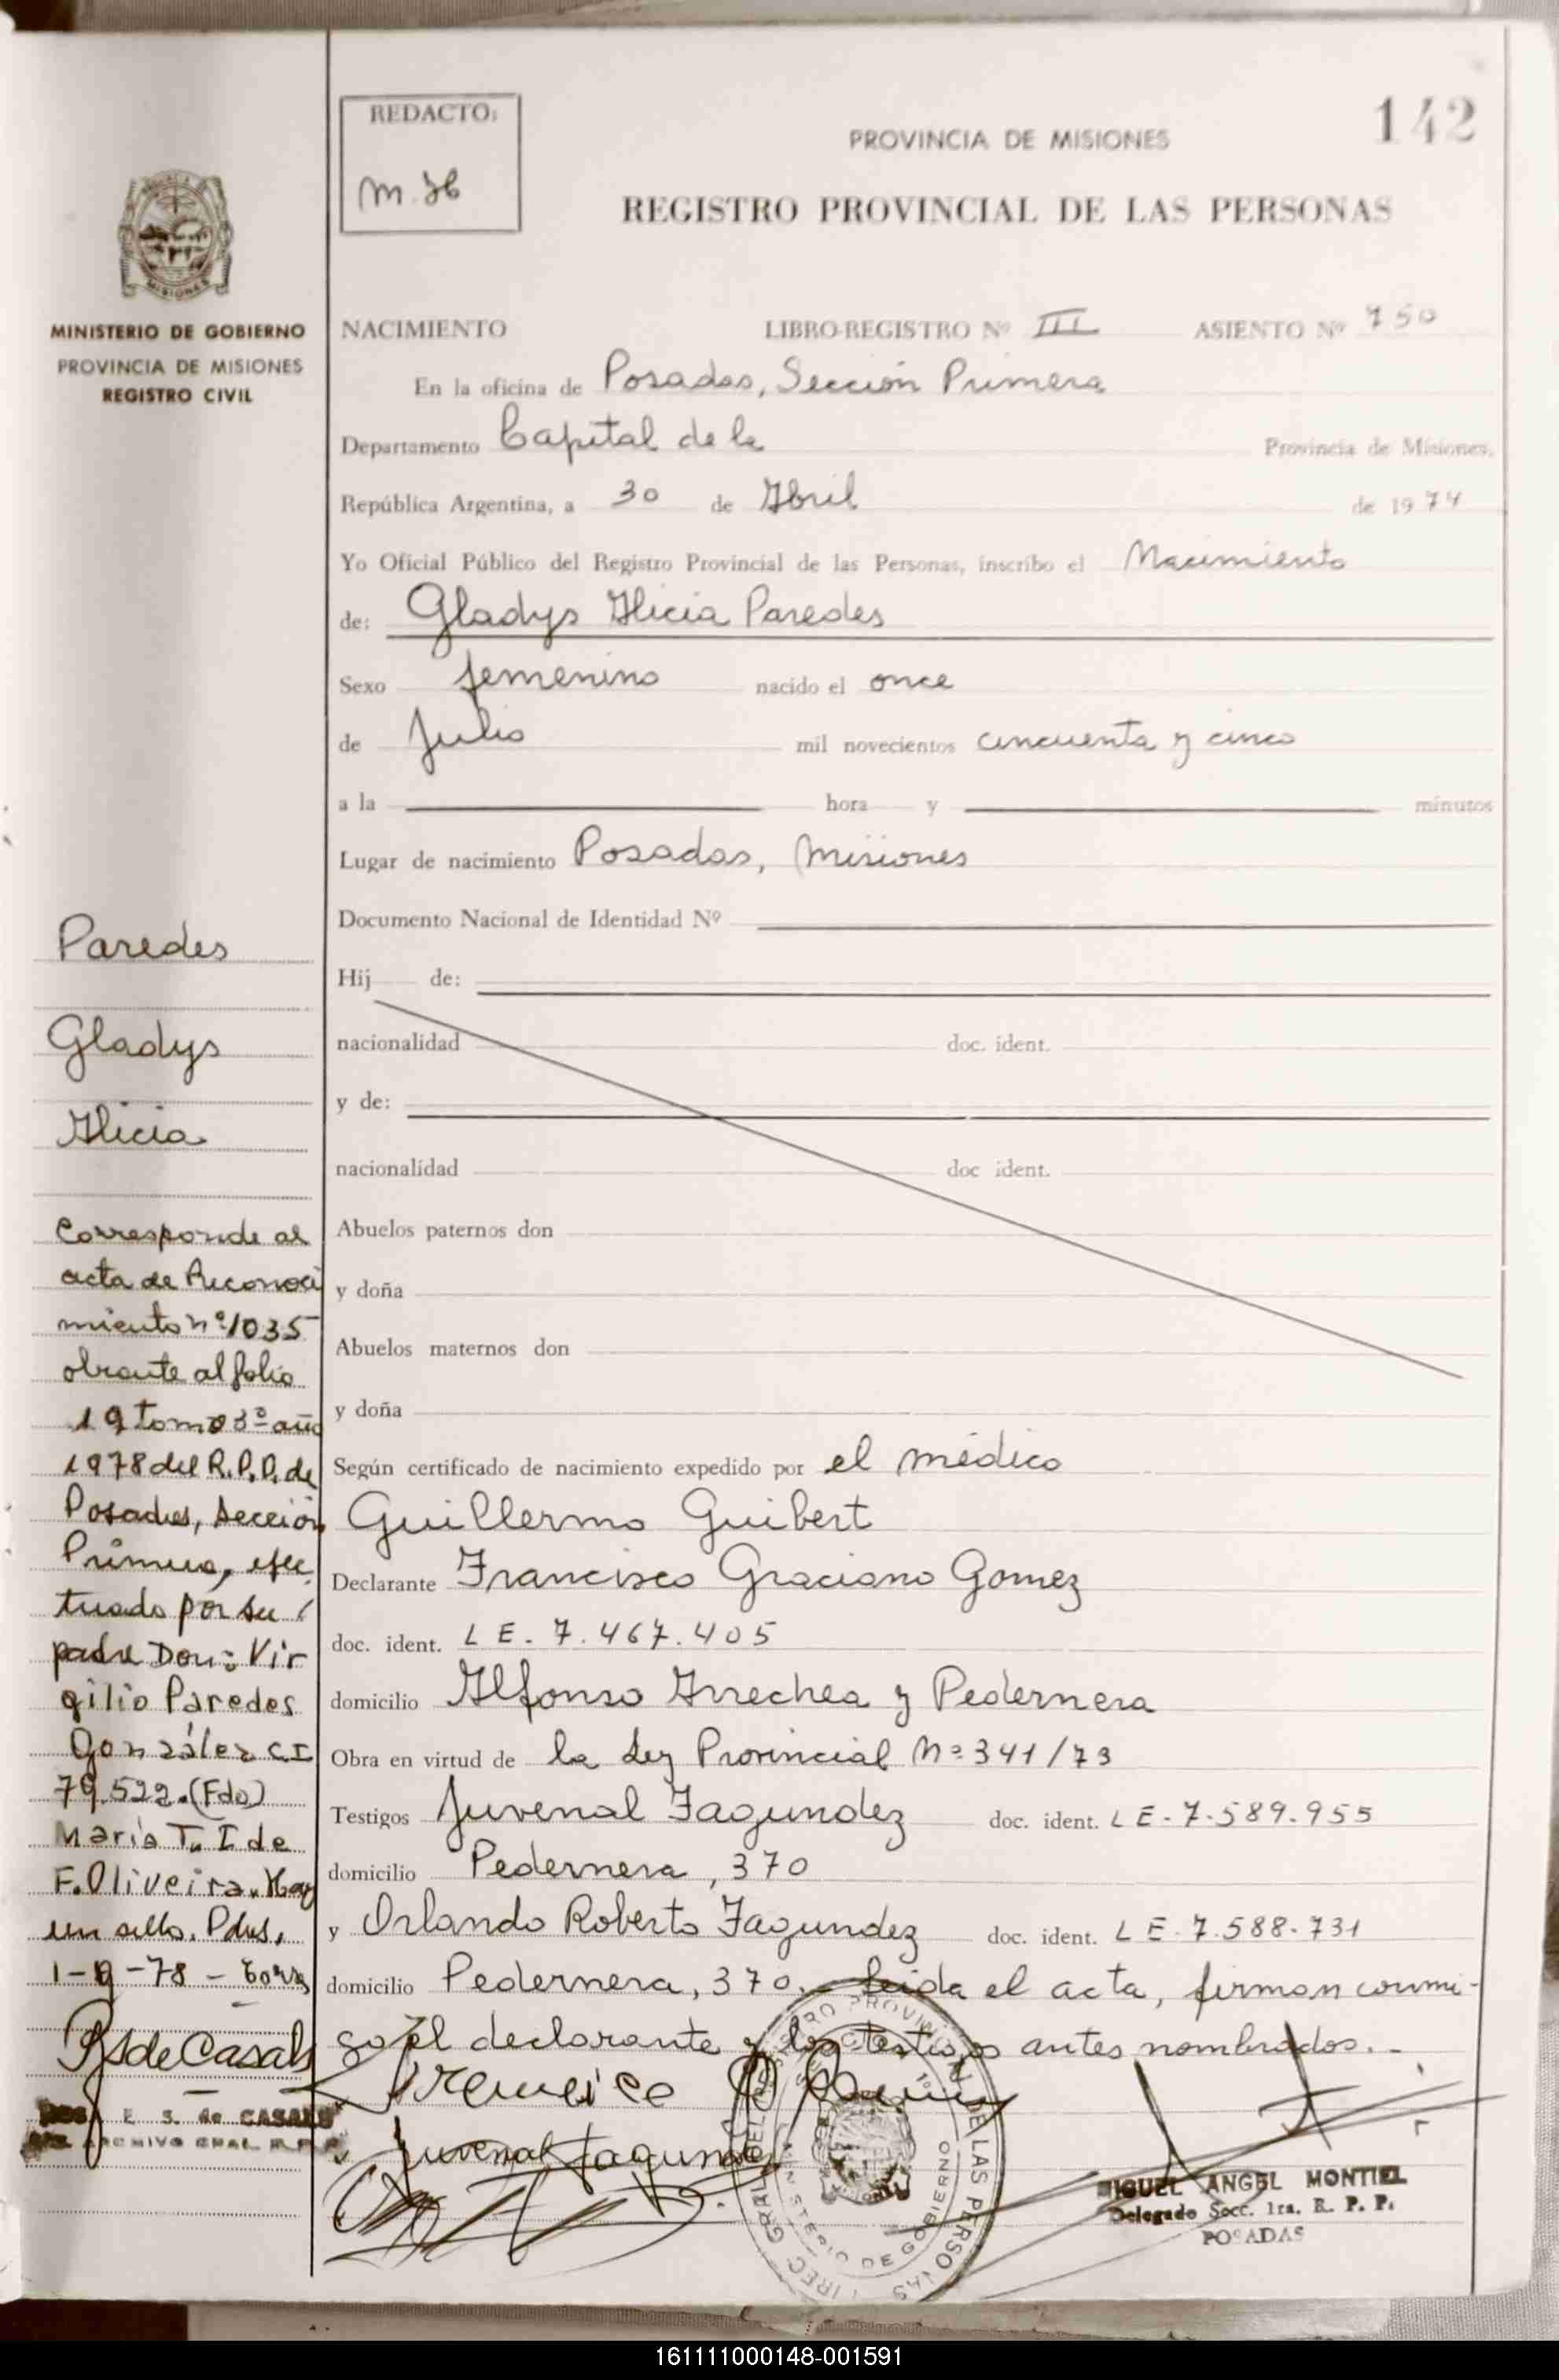 REDACTO:
M. H
142
PROVINCIA DE MISIONES
REGISTRO PROVINCIAL DE LAS PERSONAS
MISIONES
MINISTERIO DE GOBIERNO
PROVINCIA DE MISIONES
REGISTRO CIVIL
NACIMIENTO LIBRO-REGISTRO Nº III ASIENTO Nº 750
En la oficina de Posadas, Sección Primera
Departamento Capital de la Provincia de Misiones,
República Argentina, a 30 de Abril de 1974
Yo Oficial Público del Registro Provincial de las Personas, inscribo el Nacimiento
de: Gladys Alicia Paredes
Sexo femenino nacido el once
de Julio mil novecientos cincuenta y cinco
a la hora y minutos
Lugar de nacimiento Posadas, Misiones
Documento Nacional de Identidad Nº
Hij de:
nacionalidad doc. ident.
y de:
nacionalidad doc ident.
Abuelos paternos don
y doña
Abuelos maternos don
y doña
Según certificado de nacimiento expedido por el médico
Guillermo Guibert
Declarante Francisco Graciano Gomez
doc. ident. L E. 7.467.405
domicilio Alfonso Arrechea y Pedernera
Obra en virtud de la Ley Provincial Nº 341/73
Testigos Juvenal Fagundez doc. ident. L E. 7.589.955
domicilio Pedernera, 370
y Orlando Roberto Fagundez doc. ident. L E. 7.588.731
domicilio Pedernera, 370. Leida el acta, firman conmi-
go el declarante y los testigos antes nombrados.-
Juvenal Fagundez
MIGUEL ANGEL MONTIEL
Delegado Secc. 1ra. R. P. P.
POSADAS
Paredes
Gladys
Alicia
Corresponde al
acta de Reconoci
miento nº 1035
obrante al folio
19 tomo 3º año
1978 del R.P.P. de
Posadas, Sección
Primera, efec
tuado por su
padre Don: Vir
gilio Paredes
González CI
79.522.(Fdo)
María T. I de
F. Oliveira. Hay
un sello. Pdas,
1-9-78 -
E. S. de CASALS
ARCHIVO GRAL. R.P.P.
161111000148-001591